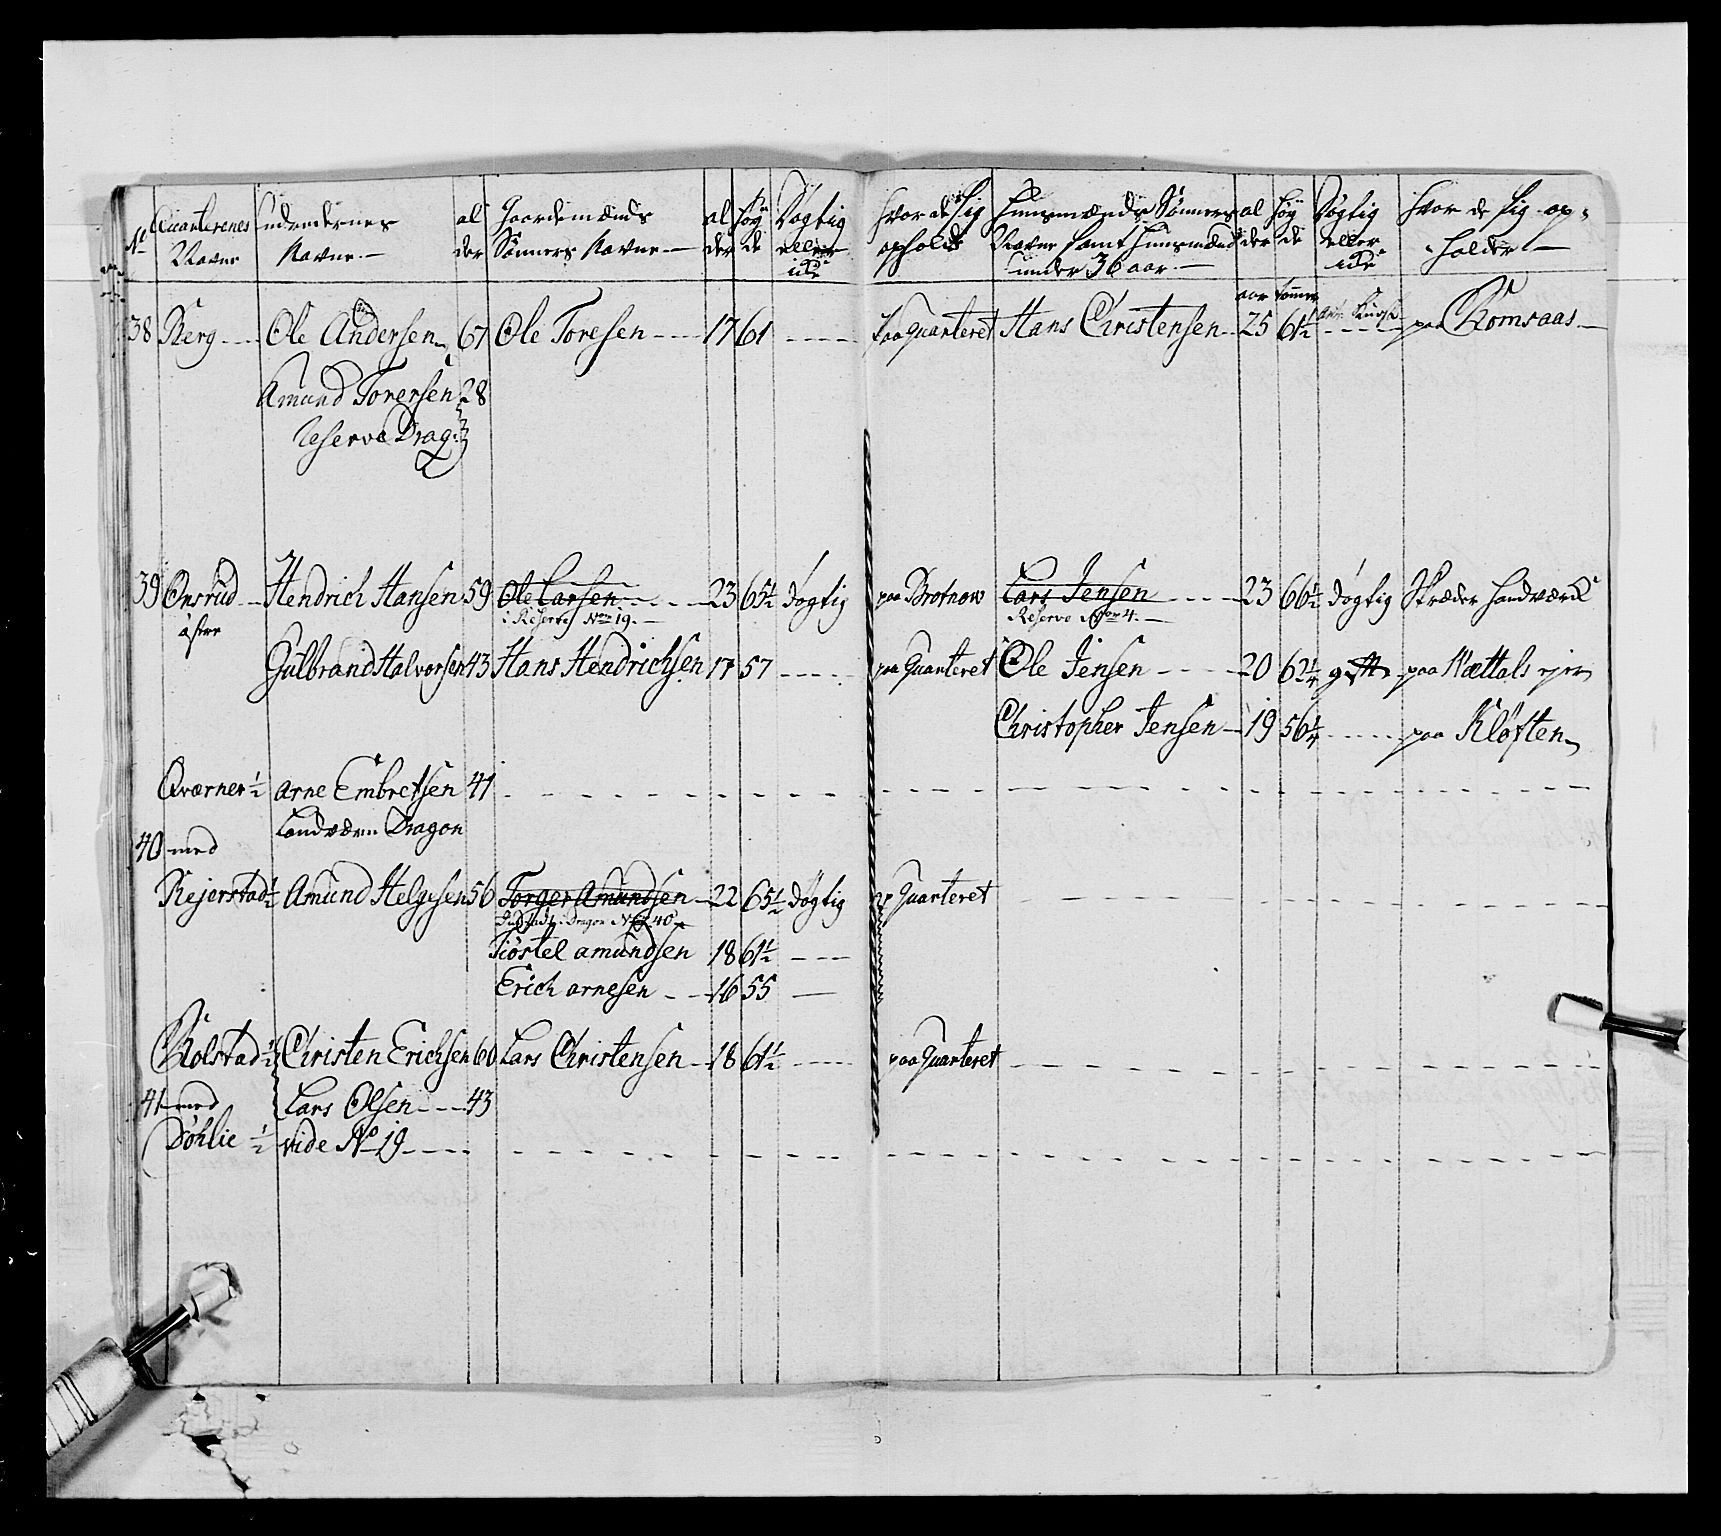 No Quarterenes Navne | Navne | alder | Gaardemænds Sønners Navne | alder | Høyde | Døgtig eller iche | Hvor de Sig opholde | Huusmænds Sønners Navne samt Huusmænd under 36 aar | alder | Høyde | Døgtig eller iche | Hvor de Sig opholder
aar tommer
38 Berg Ole Andersen 67 Ole Toresen 17 61 paa Quarteret Hans Christensen 25 61½ paa Romsaas
Amund Torersen 28
Reserve Drag:
39 Onsrud Hendrich Hansen 59 Ole Larsen 23 65½ døgtig paa Brotnow Lars Jensen 23 66½ døgtig Skræder Handværk
østre i Reserve No 19. Reserve No 4.
Gulbrand Halvorsen 43 Hans Hendrichsen 17 57 paa Quarteret Ole Jensen 20 62¼ paa Nættals ejer
Christopher Jensen 19 56¼ paa Kløften
Qværner ½ Arne Embretsen 41
Landværn Dragon
40 med
Rejerstad ½ Amund Helgesen 56 Torger Amundsen 22 65½ døgtig Quarteret
Dragon No 40
Tiøstel amundsen 18 61½
Erich arnesen 16 55
Rolstad ½ Christen Erichsen 60 Lars Christensen 18 61½ paa Quarteret
41 med Lars Olsen 43
Døhlie ½ vide No 19